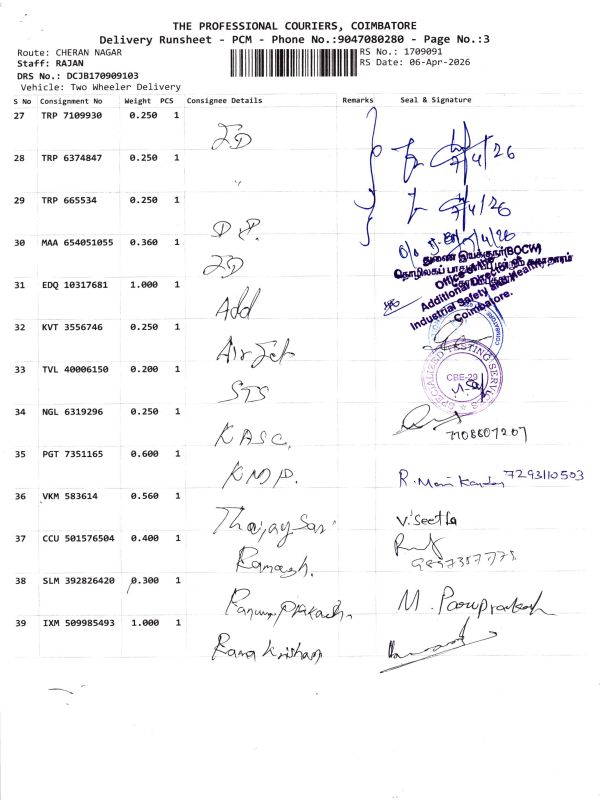 THE PROFESSIONAL COURIERS, COIMBATORE
Delivery Runsheet - PCM - Phone No.:9047080280 - Page No.:3
Route: CHERAN NAGAR
RS No.: 1709091
Staff: RAJAN
RS Date: 06-Apr-2026
DRS No.: DCJB170909103
Vehicle: Two Wheeler Delivery
S No Consignment No Weight PCS Consignee Details Remarks Seal & Signature
27 TRP 7109930 0.250 1
ID
7/4/26
28 TRP 6374847 0.250 1
"
29 TRP 665534 0.250 1
7/4/26
30 MAA 654051055 0.360 1
துணை இயக்குநர்(BOCW)
Office of the
Additional Director of
Industrial Safety and Health,
Coimbatore.
31 EDQ 10317681 1.000 1
Add
32 KVT 3556746 0.250 1
Air Jet
33 TVL 40006150 0.200 1
STS
SPECIALIZED TESTING SERVICES
CBE-29
34 NGL 6319296 0.250 1
KASC.
7708607207
35 PGT 7351165 0.600 1
KMP.
R. Mani Kandan 7293110503
36 VKM 583614 0.560 1
V. Seetha
37 CCU 501576504 0.400 1
Ramesh.
38 SLM 392826420 0.300 1
M. Ramprakash
39 IXM 509985493 1.000 1
Rama Krishnan